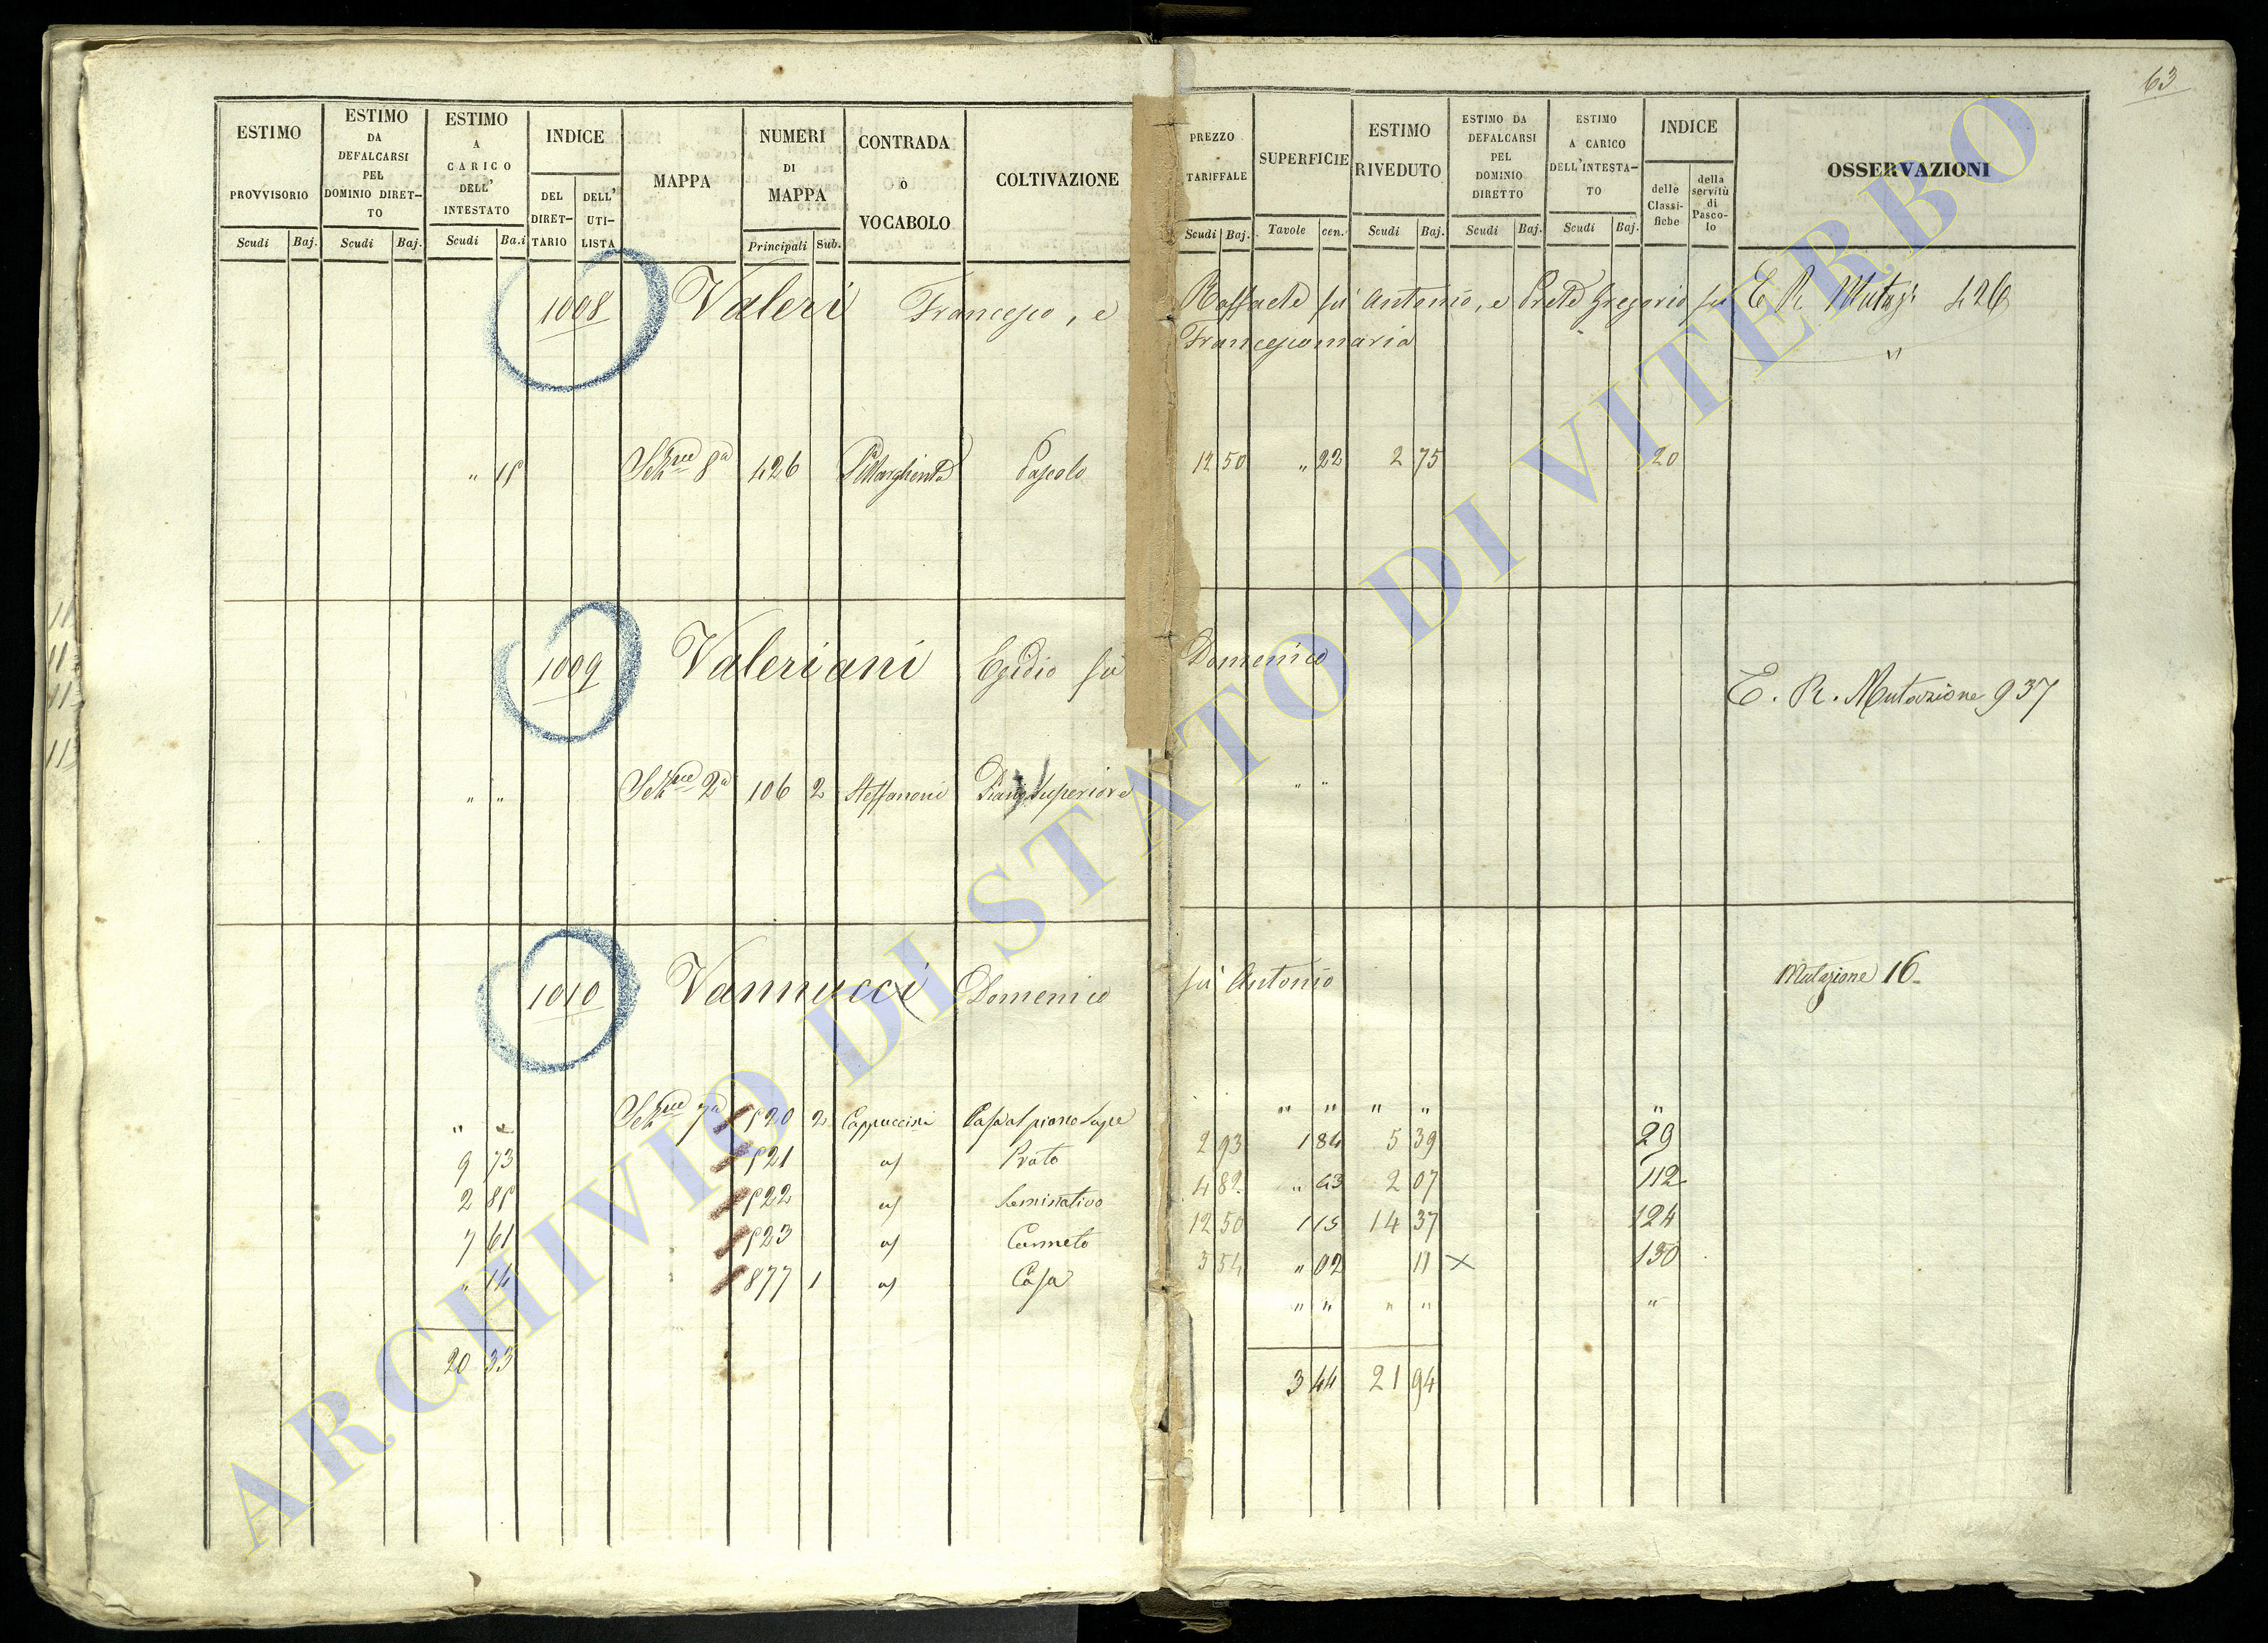 63
ESTIMO PROVVISORIO Scudi Baj.
ESTIMO DA DEFALCARSI PEL DOMINIO DIRET- TO Scudi Baj.
ESTIMO A CARICO DELL' INTESTATO Scudi Ba.i
INDICE DEL DIRET- TARIO DELL' UTI- LISTA
MAPPA
NUMERI DI MAPPA Principali Sub.
CONTRADA o VOCABOLO
COLTIVAZIONE
PREZZO TARIFFALE Scudi Baj.
SUPERFICIE Tavole cen.
ESTIMO RIVEDUTO Scudi Baj.
ESTIMO DA DEFALCARSI PEL DOMINIO DIRETTO Scudi Baj.
ESTIMO A CARICO DELL'INTESTA- TO Scudi Baj.
INDICE delle Classi- fiche della servitù di Pasco- lo
OSSERVAZIONI
1008 Valeri Francesco, e Raffaele fù Antonio, e Prete Gregorio fù E. R. Mutaz: 426
Francescomaria "
" 15 426 Pascolo 12 50 " 22 2 75 20
1009 Valeriani Egidio fù Domenico
E. R. Mutazione 937
" " 2a 106 2 Steffanoni Superiore " "
1010 Vannucci Domenico fù Antonio Mutazione 16
" " 7a 520 2 Cappuccini Casa al piano Supe " " " " "
9 73 521 a/ Prato 2 93 1 84 5 39 29
2 85 522 a/ Seminativo 4 82 " 43 2 07 112
7 61 523 a/ Canneto 12 50 1 15 14 37 124
" 14 877 1 a/ Casa 5 54 " 02 11 × 130
" " " " "
20 33 3 44 21 94
ARCHIVIO DI STATO DI VITERBO